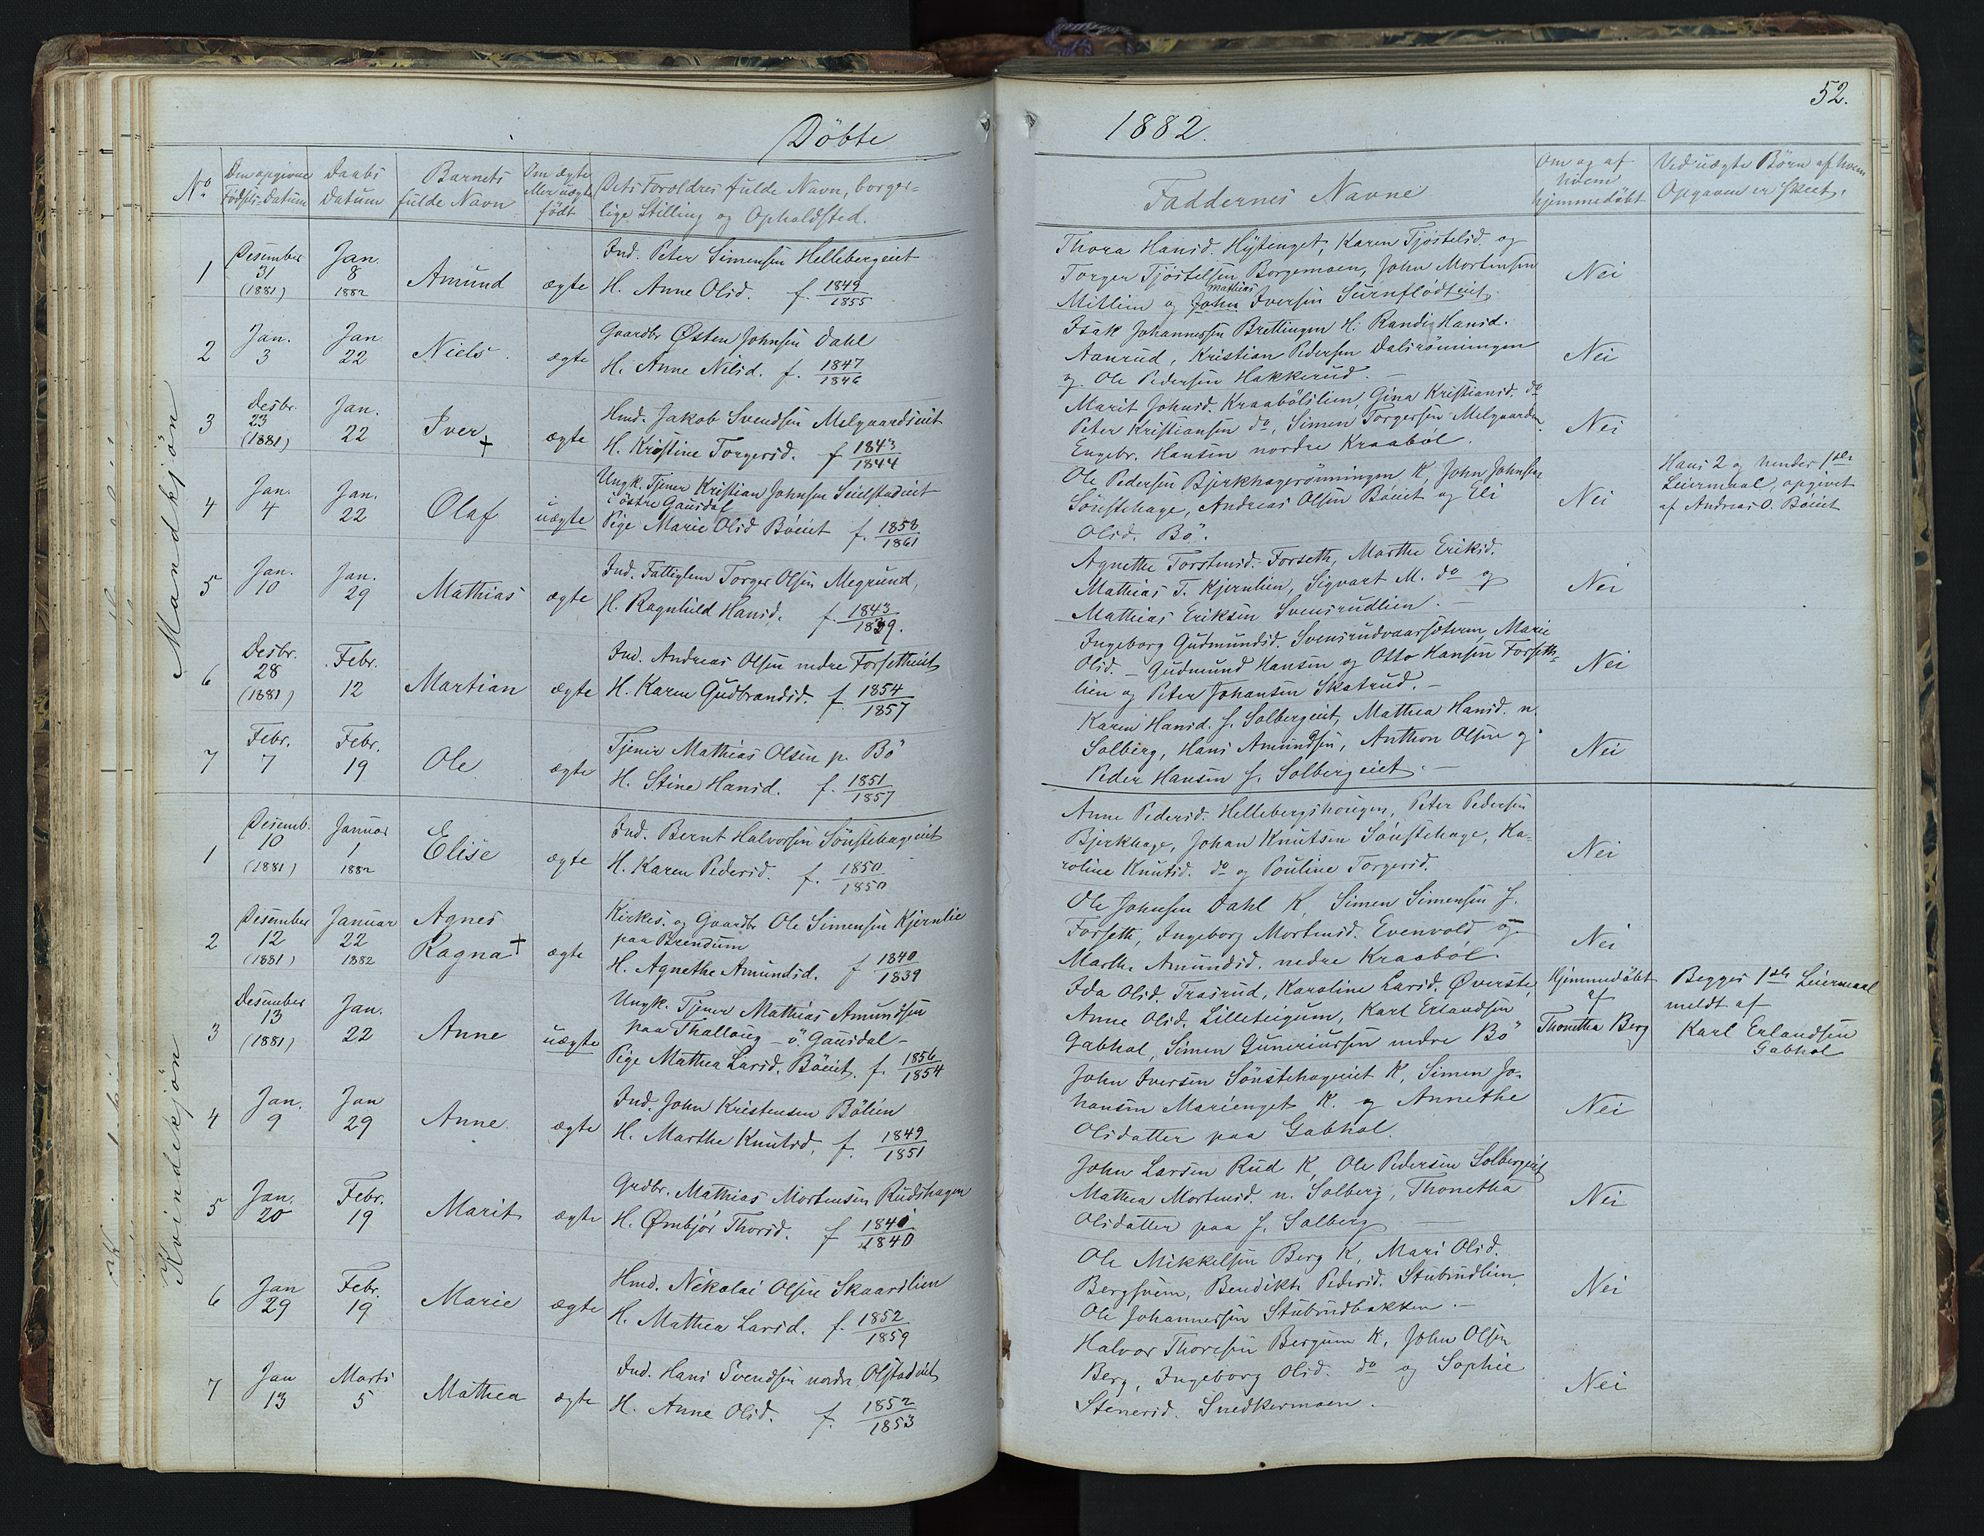 Døbte
1882.
52.
No
Den opgivne Fødsels-Datum
Daabs Datum
Barnets fulde Navn
Om ægte eller uægte født
Dets Forældres fulde Navn, borger-
lige Stilling og Opholdsted.
Faddernes Navne
Om og af hvem hjemmedøbt
Ved uægte Børn af hvem Opgaven er skeet.
Mandkjøn
1 Desember 31 (1881) Jan. 8 1882 Amund ægte
Ind. Peter Simensen Hellebergeiet
H. Anne Olsd. f. 1849/1855
Thora Hansd. Hytenget, Karen Tjøstelsd. og
Torger Tjøstelsen Borgemoen, John Mortensen
Mitlien og John Mathias Iversen Surnflødteiet.
Nei
2 Jan. 3 Jan 22 Niels. ægte
Gaardbr Østen Johnsen Dahl
H. Anne Nilsd. f. 1847/1846
Isak Johannessen Brettingen H. Randig Hansd.
Aanrud, Kristian Pedersen Dalsrønningen
og Ole Pedersen Hakkerud. —
Nei
3 Desbr. 23 (1881) Jan. 22 Iver + ægte
Hmd. Jakob Svendsen Melgaardseiet
H. Kristine Torgersd. f 1843/1844
Marit Johnsd. Kraabølslien, Gina Kristiansd. do
Peter Kristiansen do, Simen Torgersen Melgaarden
Engebr. Hansen nordre Kraabøl.
Nei
4 Jan. 4 Jan. 22 Olaf uægte
Ungk. Tjener Kristian Johnsen Seielstadeiet
i østre Gausdal
Pige Marie Olsd Bøeiet f. 1858/1861
Ole Pedersen Bjerkhagerønningen K, John Johnsen
Sønstehage, Andreas Olsen Bøeiet og Eli
Olsd. Bø.
Nei
Hans 2 og hendes 1ste
Leiermaal, opgivet
af Andreas O. Bøeiet
5 Jan. 10 Jan. 29 Mathias ægte
Ind. Fattiglem Torger Olsen Megrund,
H. Ragnhild Hansd. f. 1843/1839.
Agnethe Torstensd. Forseth, Marthe Eriksd.
Mathias T. Kjernlien, Sigvart M. do og
Mathias Eriksen Svensrudlien. —
Nei
6 Desbr. 28 (1881) Febr. 12 Martian ægte
Ind. Andreas Olsen nedre Forsetheiet
H. Karen Gudbrandsd. f 1854/1857
Ingeborg Gudmundsd. Svensrudvaarsæteren, Marie
Olsd. — Gudmund Hansen og Otto Hansen Forseth-
lien og Peter Johansen Skatrud. —
Nei
7 Febr. 7 Febr. 19 Ole ægte
Tjener Mathias Olsen p. Bø
H. Stine Hansd. f. 1851/1857
Karen Hansd. s. Solbergeiet, Mathea Hansd. n.
Solberg, Hans Amundsen, Anthon Olsen og
Peder Hansen s. Solbergeiet. —
Nei
Kvindekjøn
1 Desemb. 10 (1881) Januar 1 1882 Elise ægte
Ind. Bernt Halvorsen Sønstehageeiet
H. Karen Pedersd. f. 1850/1850
Anne Pedersd. Hellebergshaugen, Peter Pedersen
Bjerkhage, Johan Knutsen Sønstehage, Ka-
roline Knutsd. do og Pouline Torgersd.
Nei
2 Desember 12 (1881) Januar 22 1882 Agnes Ragna + ægte
Kirkes. og Gaardbr Ole Simensen Kjernlie
paa Brendum
H. Agnethe Amundsd. f 1840/1839
Ole Johnsen Dahl K, Simen Simensen s.
Forseth, Ingeborg Mortensd. Evenvold og
Marthe Amundsd. nedre Kraabøl.
Nei
3 Desember 13 (1881) Jan. 22 Anne uægte
Ungk. Tjener Mathias Amundsen
paa Thallaug — ö. Gausdal —
Pige Mathea Larsd. Bøeiet. f. 1856/1854
Ida Olsd. Trasrud, Karoline Larsd. Øverste,
Anne Olsd. Lilleteigum, Karl Erlandsen
Gabhol, Simen Guneriussen nedre Bø
Hjemmedøbt
af
Thonetha Berg
Begges 1ste Leiermaal
meldt af
Karl Erlandsen
Gabhol
4 Jan. 9 Jan 29 Anne ægte
Ind. John Kristensen Bølien
H. Marthe Knutsd. f. 1849/1851
John Iversen Sønstehageeiet K, Simen Jo-
hansen Marienget K. og Annethe
Olsdatter paa Gabhol.
Nei
5 Jan. 20 Febr. 19 Marit ægte
Grdbr. Mathias Mortensen Rudshagen
H. Ømbjør Thorsd. f 1840/1840
John Larsen Rud K, Ole Pedersen Solbergeiet
Mathea Mortensd. n. Solberg, Thonetha
Olsdatter paa s. Solberg —
Nei
6 Jan 29 Febr. 19 Marie ægte
Hmd. Nikolai Olsen Skaarslien
H. Mathea Larsd. f. 1852/1859
Ole Mikkelsen Berg K, Mari Olsd.
Bergsveen, Bendikte Pedersd. Stubrudlien,
Ole Johannessen Stubrudbakken. —
Nei
7 Jan 13 Marts 5 Mathea ægte
Ind. Hans Svendsen nordre Olstadeiet
H. Anne Olsd. f. 1852/1853
Halvor Thoresen Bergum K, John Olsen
Berg, Ingeborg Olsd. do og Sophie
Stenersd. Snedkermoen.
Nei